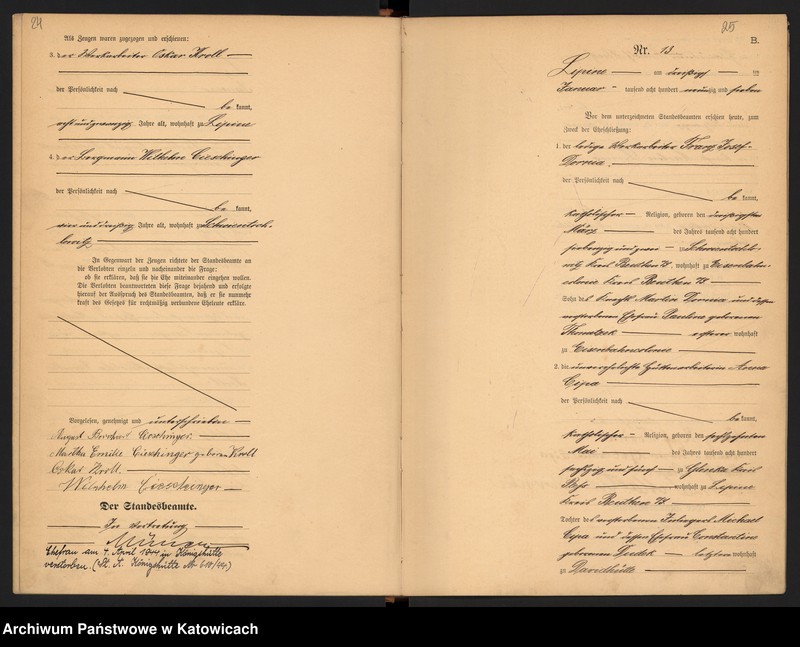 24
Als Zeugen waren zugezogen und erschienen:
3. der Werkarbeiter Oskar Kroll
der Persönlichkeit nach
be kannt,
acht und zwanzig Jahre alt, wohnhaft zu Lipine
4. der Bergmann Wilhelm Cieschinger
der Persönlichkeit nach
be kannt,
vier und dreißig Jahre alt, wohnhaft zu Schwientoch-
lowitz
In Gegenwart der Zeugen richtete der Standesbeamte an
die Verlobten einzeln und nacheinander die Frage:
ob sie erklären, daß sie die Ehe miteinander eingehen wollen.
Die Verlobten beantworteten diese Frage bejahend und erfolgte
hierauf der Ausspruch des Standesbeamten, daß er sie nunmehr
kraft des Gesetzes für rechtmäßig verbundene Eheleute erkläre.
Vorgelesen, genehmigt und unterschrieben
August Bernhard Cieschinger
Martha Emilie Cieschinger geborene Kroll
Oskar Kroll.
Wilhelm Cieschinger
Der Standesbeamte.
In Vertretung
Ehefrau am 7. April 1944 in Königshütte
verstorben. (St. A. Königshütte Nr 618/44)
25
B.
Nr. 13
Lipine am dreißig ten
Januar tausend acht hundert neunzig und sieben
Vor dem unterzeichneten Standesbeamten erschien heute, zum
Zweck der Eheschließung:
1. der ledige Werkarbeiter Franz Josef
der Persönlichkeit nach
be kannt,
katholischer Religion, geboren den dreißigsten
März des Jahres tausend acht hundert
siebenzig und zwei zu Schwientochlo-
witz Kreis Beuthen O/S, wohnhaft zu Eisenbahn-
colonie Kreis Beuthen O/S
Sohn des Knecht Martin und dessen
verstorbenen Ehefrau Pauline geborenen
ersterer wohnhaft
zu Eisenbahncolonie
2. die unverehelichte Hüttenarbeiterin Anna
Cipa
der Persönlichkeit nach
be kannt,
katholischer Religion, geboren den
Mai des Jahres tausend acht hundert
und fünf zu Kreis
wohnhaft zu Lipine
Kreis Beuthen O/S
Tochter des verstorbenen Michael
Cipa und dessen Ehefrau Constantine
geborenen Dudek letztere wohnhaft
zu Davidhütte
Archiwum Państwowe w Katowicach